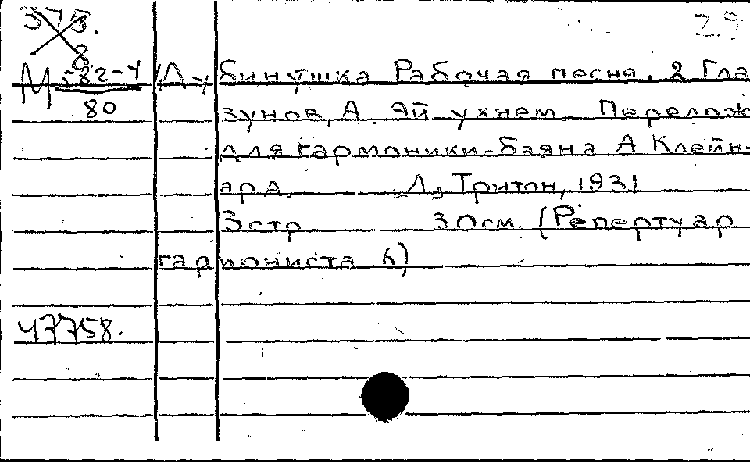 375. 29
8
М -82-4 Ду бинушка Рабочая песня. 2 Гла
80 зунов, А. Эй ухнем Перелож
для гармоники-баяна А Клейн-
ард. Л., Тритон, 1931
3 стр 30см (Репертуар
гармониста 6)
47758.